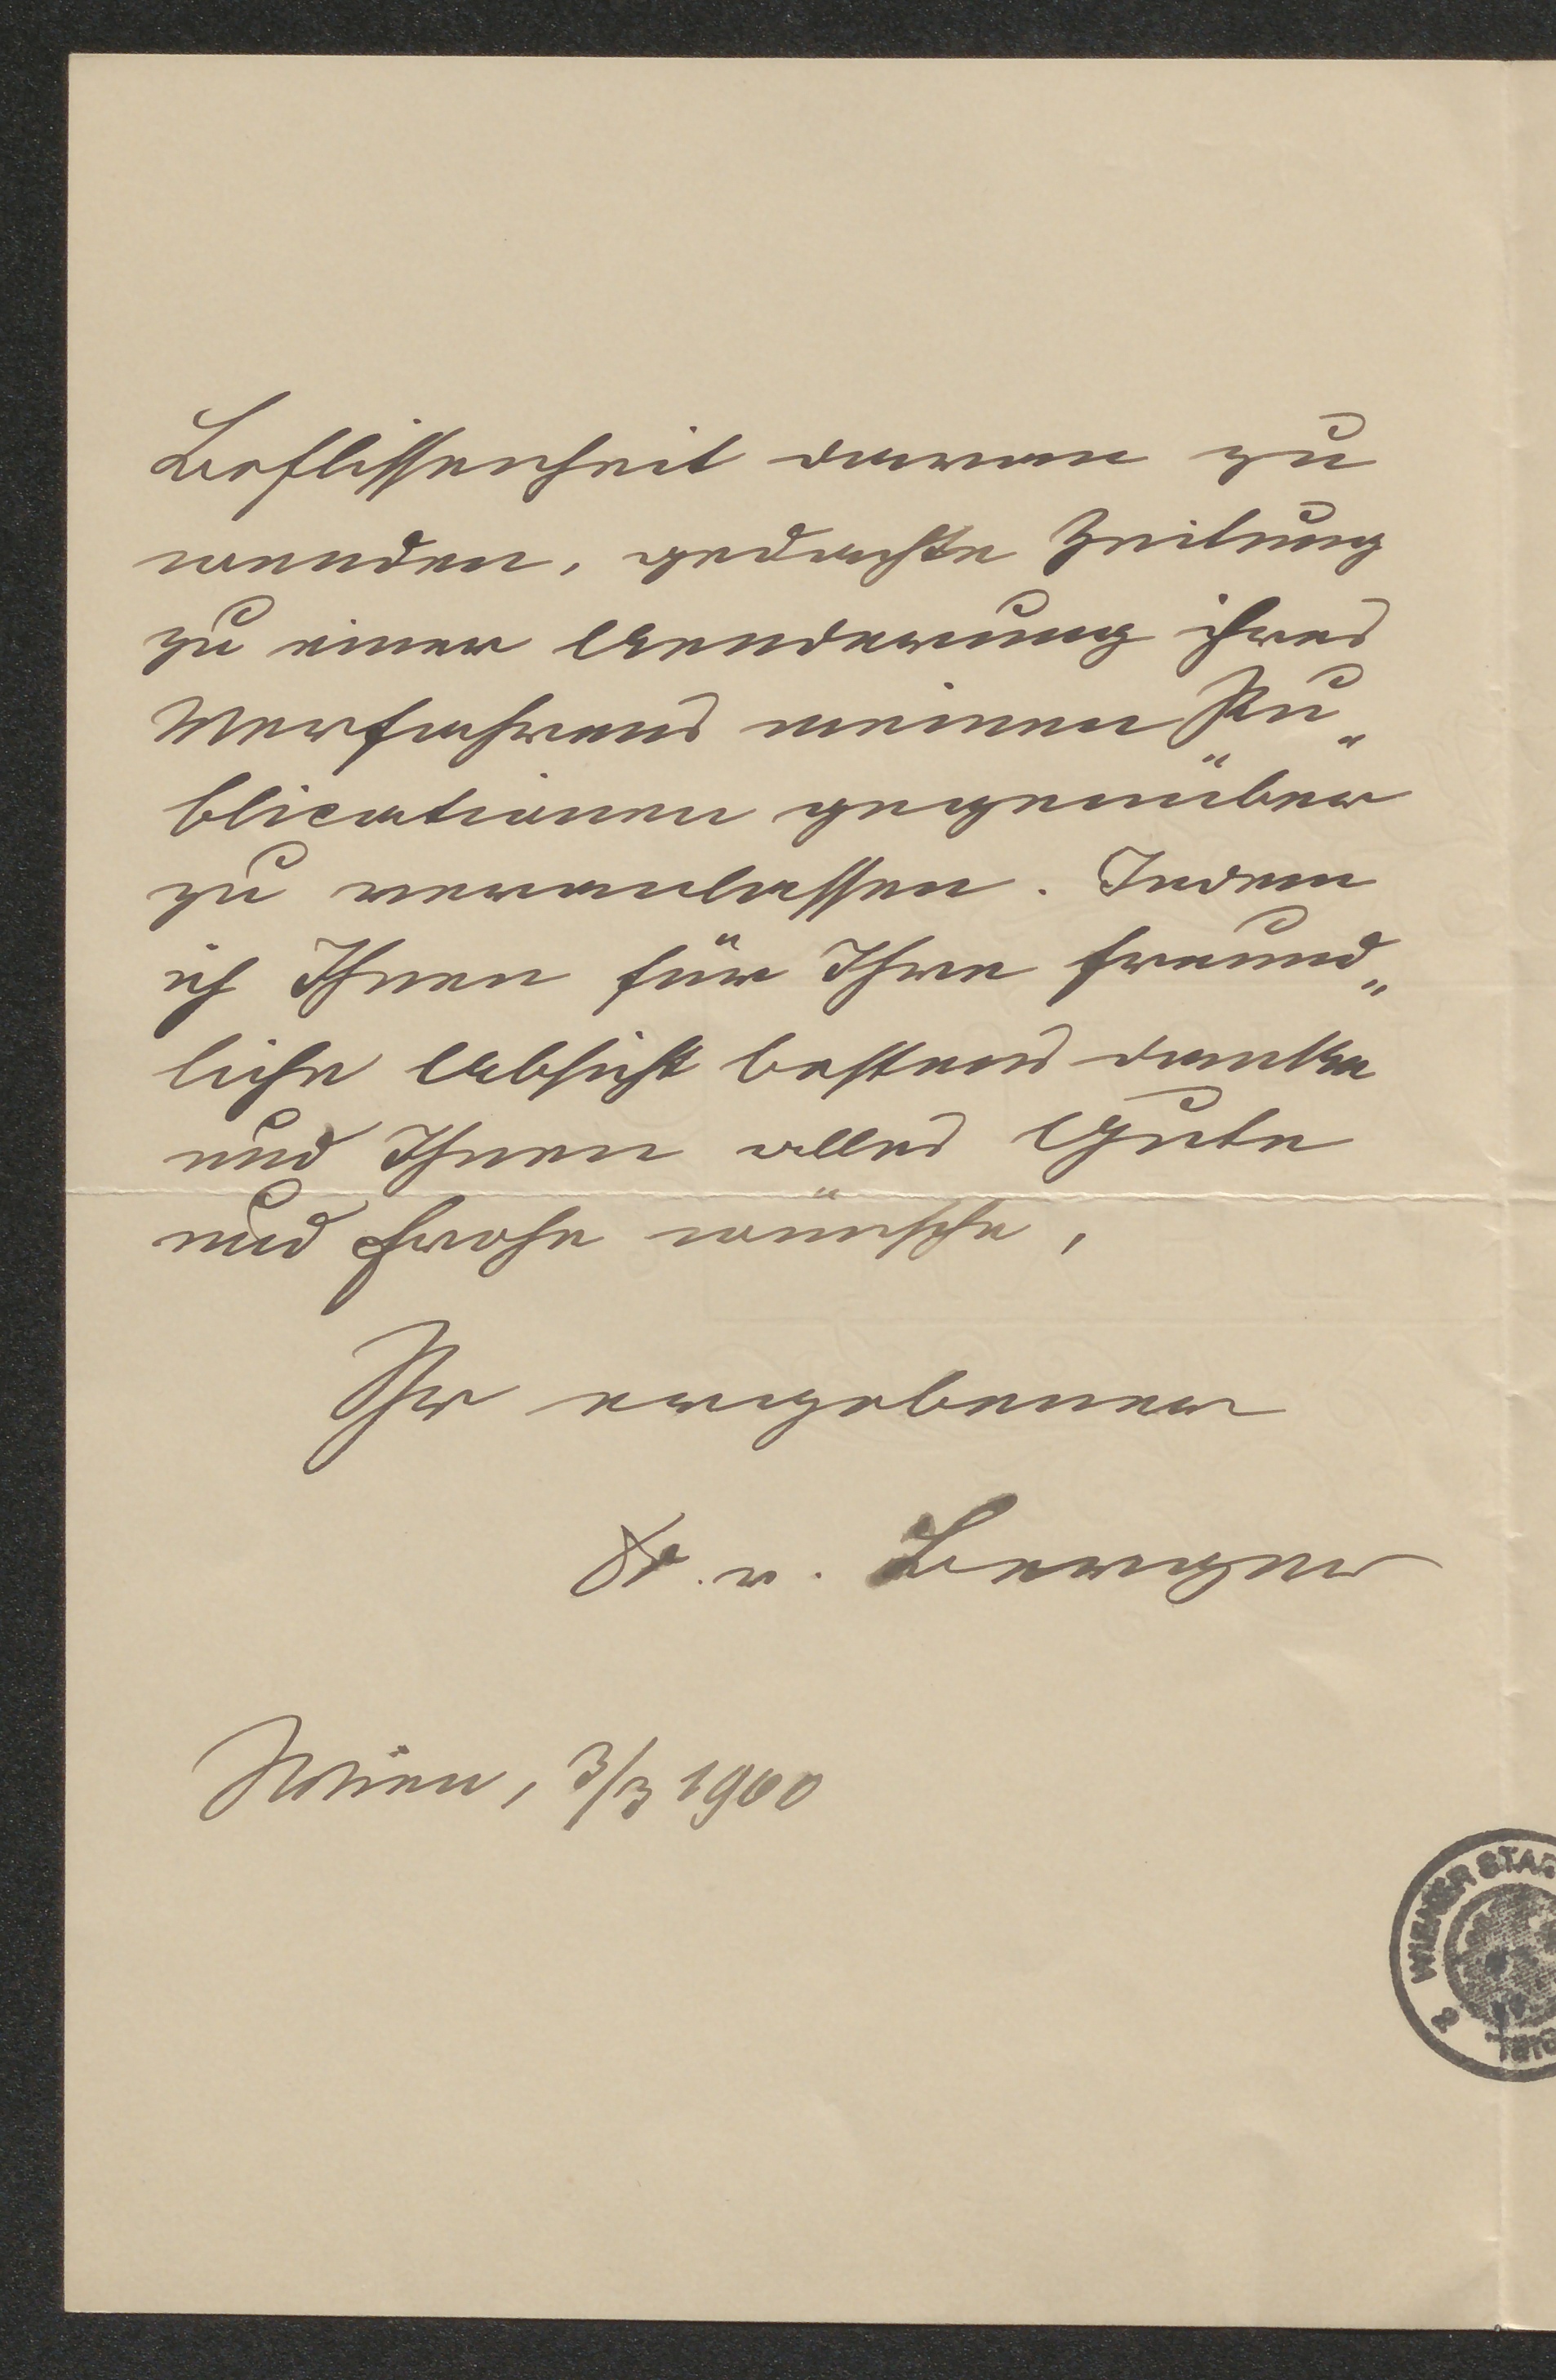 Beflissenheit daran zu
wenden, gedachte Zeitung
zu einer Aenderung ihres
Verfahrens meinen Pu„
blicationen gegenüber
zu veranlassen. Indem
ich Ihnen für Ihre freund„
liche Absicht bestens danke
und Ihnen alles Gute
und Frohe wünsche,
Ihr ergebener
A. v. Berger
Wien, 3/3 1900
WIENER STA